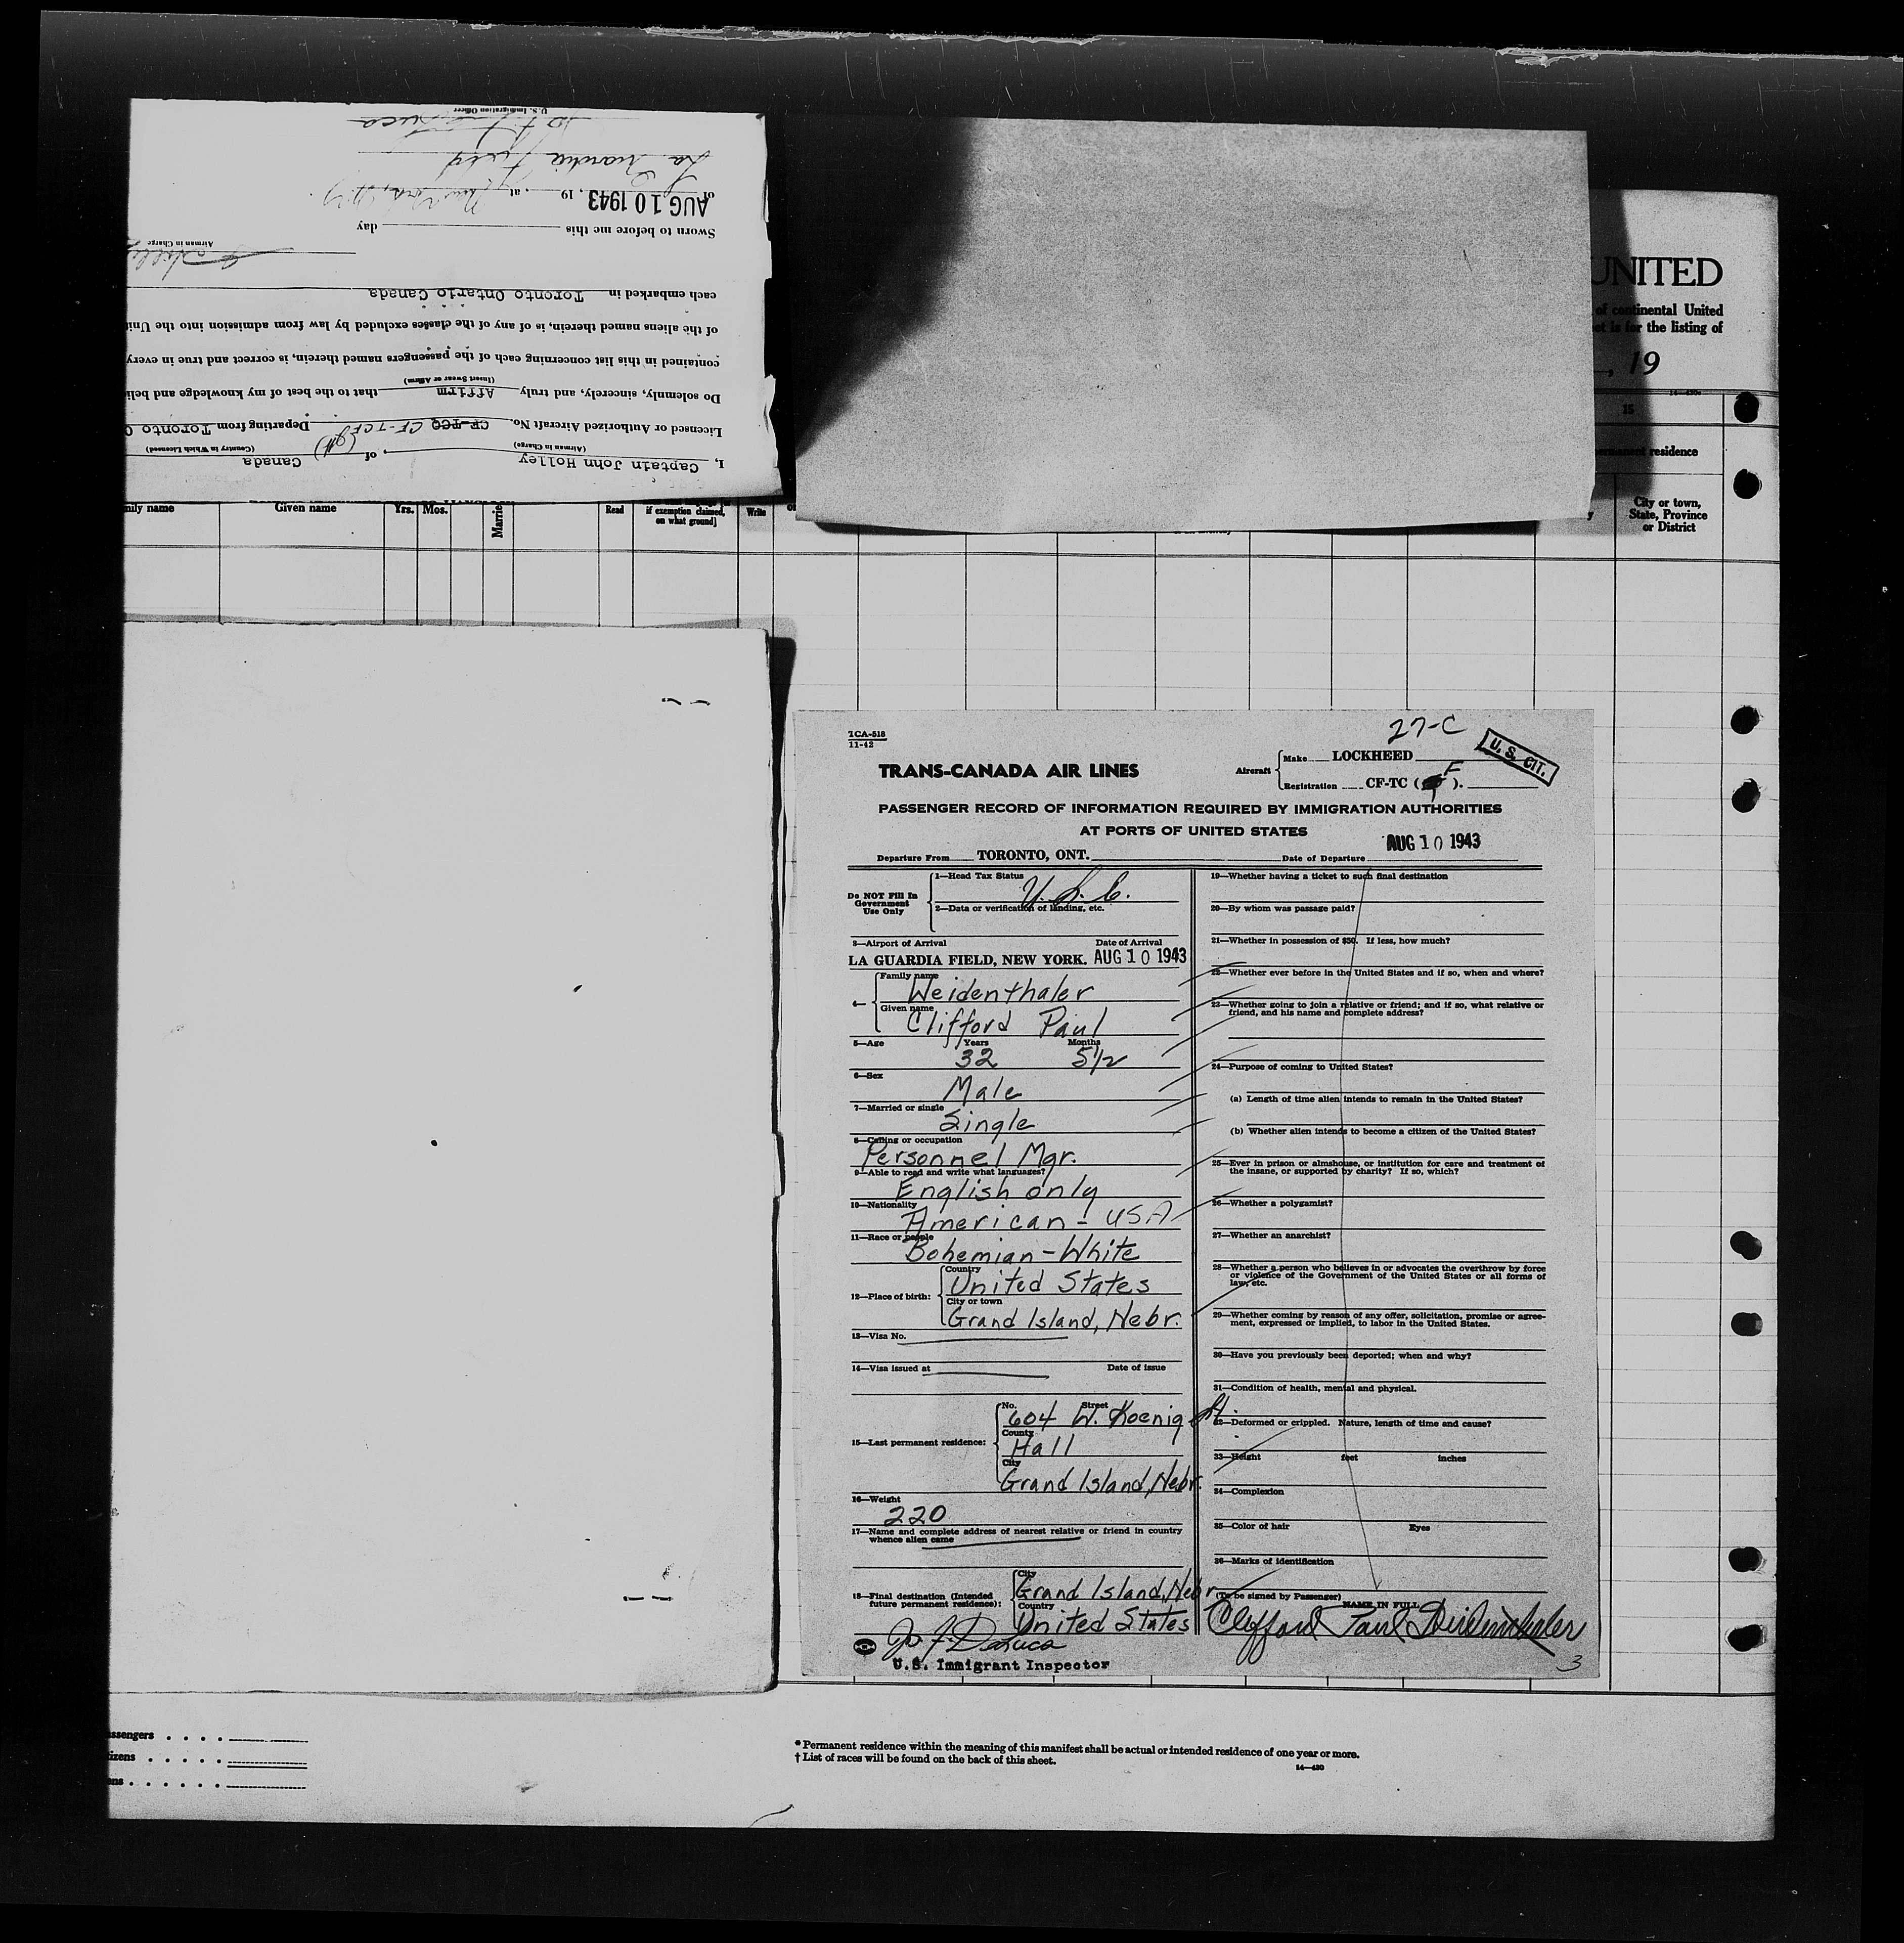 U.S. Immigration Officer
La Guardia Field
of AUG 10 1943, 19 , at New York, N.Y.
Sworn to before me this day
Airman in Charge
each embarked in Toronto Ontario Canada
of the aliens named therein, is of any of the classes excluded by law from admission into the Uni
contained in this list concerning each of the passengers named therein, is correct and true in every
(Insert Swear or Affirm)
Do solemnly, sincerely, and truly Affirm that to the best of my knowledge and beli
Licensed or Authorized Aircraft No. CF-TCQ CF-TCF Departing from Toronto O
(Airman in Charge) (Country in Which Licensed)
I, Captain John Holley, of Canada
UNITED
of continental United
et is for the listing of
, 19
14—430
15
permanent residence
City or town,
State, Province
or District
mily name Given name Yrs. Mos. Married Read if exemption claimed, on what ground] Write
TCA-518
11-42
27-C
U. S. CIT.
TRANS-CANADA AIR LINES
Aircraft Make LOCKHEED
Registration CF-TC ( F ).
PASSENGER RECORD OF INFORMATION REQUIRED BY IMMIGRATION AUTHORITIES
AT PORTS OF UNITED STATES
AUG 10 1943
Departure From TORONTO, ONT. Date of Departure
Do NOT Fill In
Government
Use Only
1—Head Tax Status
U.S.C.
2—Data or verification of landing, etc.
3—Airport of Arrival Date of Arrival
LA GUARDIA FIELD, NEW YORK. AUG 10 1943
4— Family name
Weidenthaler
Given name
Clifford Paul
5—Age Years Months
32 5 1/2
6—Sex
Male
7—Married or single
Single
8—Calling or occupation
Personnel Mgr.
9—Able to read and write what languages?
English only
10—Nationality
American - USA
11—Race or people
Bohemian - White
12—Place of birth: Country
United States
City or town
Grand Island, Nebr.
13—Visa No.
14—Visa issued at Date of issue
15—Last permanent residence: No. Street
604 W. Koenig St.
County
Hall
City
Grand Island, Nebr.
16—Weight
220
17—Name and complete address of nearest relative or friend in country
whence alien came
18—Final destination (Intended
future permanent residence):
City
Grand Island, Nebr
Country
United States
Jo. F. DeLuca
U.S. Immigrant Inspector
19—Whether having a ticket to such final destination
20—By whom was passage paid?
21—Whether in possession of $50. If less, how much?
22—Whether ever before in the United States and if so, when and where?
23—Whether going to join a relative or friend; and if so, what relative or
friend, and his name and complete address?
24—Purpose of coming to United States?
(a) Length of time alien intends to remain in the United States?
(b) Whether alien intends to become a citizen of the United States?
25—Ever in prison or almshouse, or institution for care and treatment of
the insane, or supported by charity? If so, which?
26—Whether a polygamist?
27—Whether an anarchist?
28—Whether a person who believes in or advocates the overthrow by force
or violence of the Government of the United States or all forms of
law, etc.
29—Whether coming by reason of any offer, solicitation, promise or agree-
ment, expressed or implied, to labor in the United States.
30—Have you previously been deported; when and why?
31—Condition of health, mental and physical.
32—Deformed or crippled. Nature, length of time and cause?
33—Height feet inches
34—Complexion
35—Color of hair Eyes
36—Marks of identification
(To be signed by Passenger)
NAME IN FULL
Clifford Paul Weidenthaler
3
assengers
tizens
ens
* Permanent residence within the meaning of this manifest shall be actual or intended residence of one year or more.
† List of races will be found on the back of this sheet.
14—430